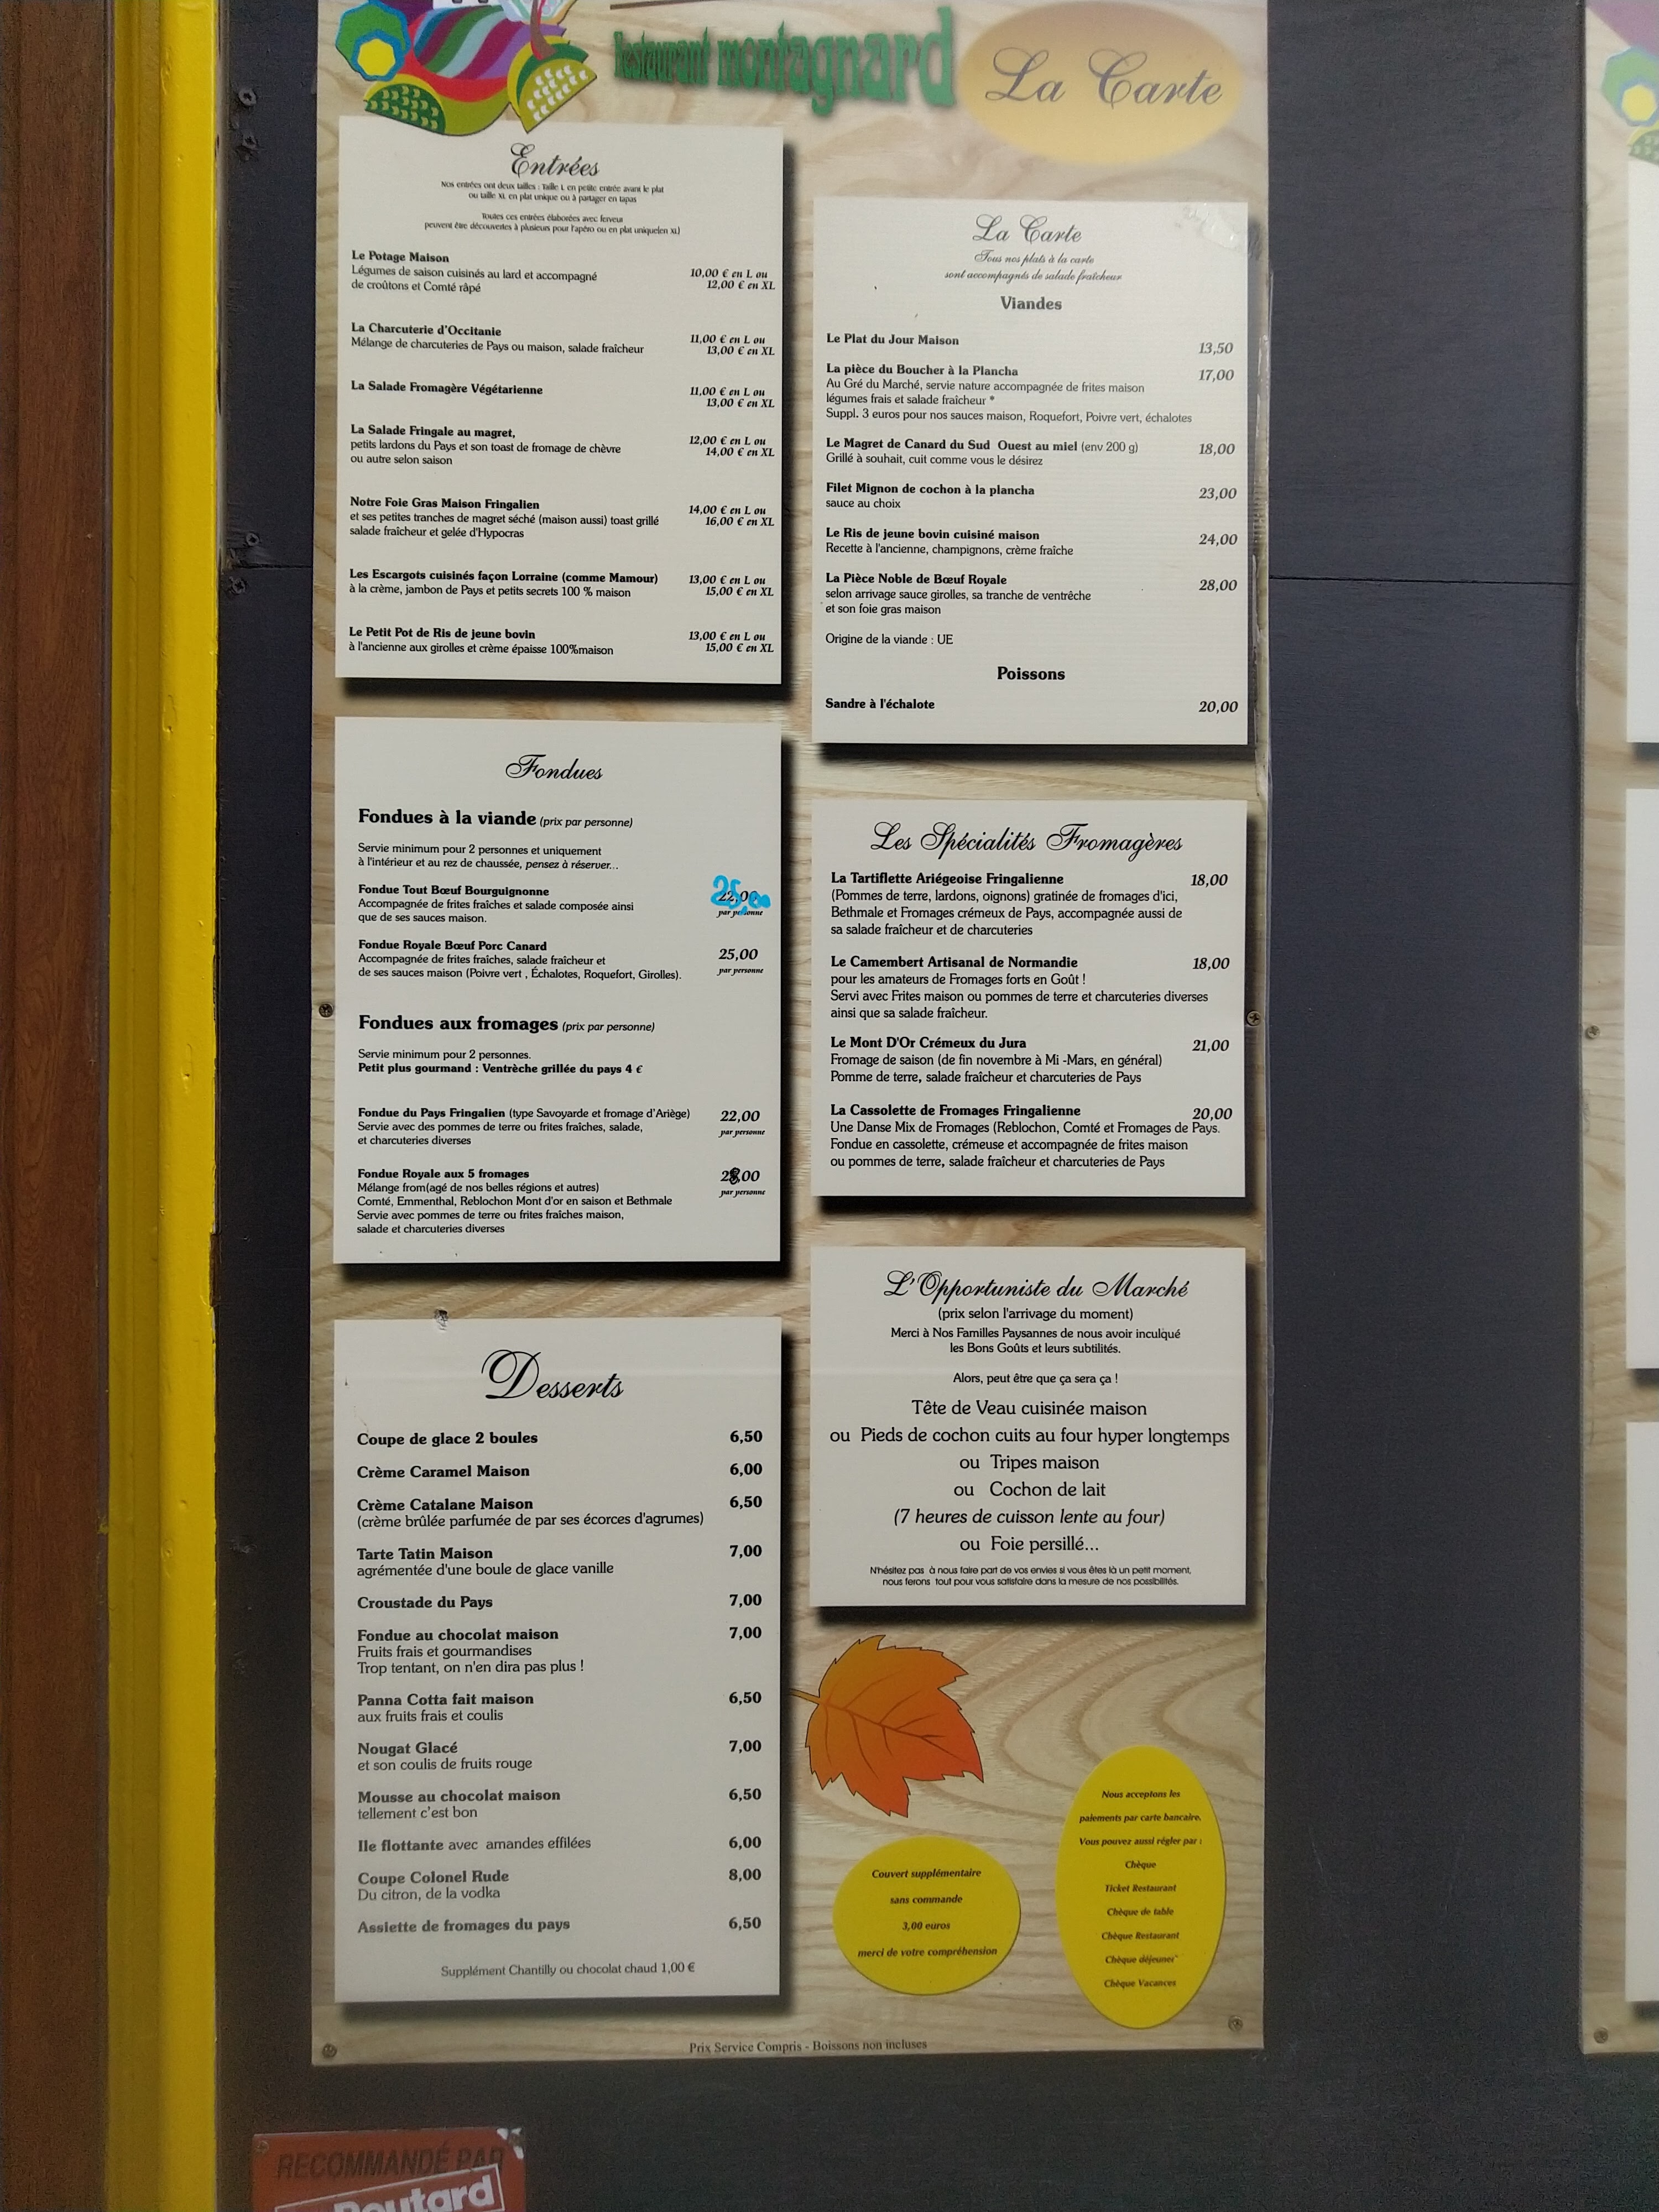 Restaurant montagnard
La Carte
Entrées
Nos entrées ont deux tailles : Taille L en petite entrée avant le plat
ou taille XL en plat unique ou à partager en tapas
Toutes ces entrées élaborées avec ferveur
peuvent être découvertes à plusieurs pour l'apéro ou en plat unique(en XL)
Le Potage Maison
Légumes de saison cuisinés au lard et accompagné 10,00 € en L ou
de croûtons et Comté râpé 12,00 € en XL
La Charcuterie d'Occitanie 11,00 € en L ou
Mélange de charcuteries de Pays ou maison, salade fraîcheur 13,00 € en XL
La Salade Fromagère Végétarienne 11,00 € en L ou
13,00 € en XL
La Salade Fringale au magret, 12,00 € en L ou
petits lardons du Pays et son toast de fromage de chèvre 14,00 € en XL
ou autre selon saison
Notre Foie Gras Maison Fringalien 14,00 € en L ou
et ses petites tranches de magret séché (maison aussi) toast grillé 16,00 € en XL
salade fraîcheur et gelée d'Hypocras
Les Escargots cuisinés façon Lorraine (comme Mamour) 13,00 € en L ou
à la crème, jambon de Pays et petits secrets 100 % maison 15,00 € en XL
Le Petit Pot de Ris de jeune bovin 13,00 € en L ou
à l'ancienne aux girolles et crème épaisse 100%maison 15,00 € en XL
Fondues
Fondues à la viande (prix par personne)
Servie minimum pour 2 personnes et uniquement
à l'intérieur et au rez de chaussée, pensez à réserver...
Fondue Tout Bœuf Bourguignonne 22,00 25,00
Accompagnée de frites fraîches et salade composée ainsi par personne
que de ses sauces maison.
Fondue Royale Bœuf Porc Canard 25,00
Accompagnée de frites fraîches, salade fraîcheur et
de ses sauces maison (Poivre vert , Échalotes, Roquefort, Girolles). par personne
Fondues aux fromages (prix par personne)
Servie minimum pour 2 personnes.
Petit plus gourmand : Ventrèche grillée du pays 4 €
Fondue du Pays Fringalien (type Savoyarde et fromage d'Ariège) 22,00
Servie avec des pommes de terre ou frites fraîches, salade, par personne
et charcuteries diverses
Fondue Royale aux 5 fromages
Mélange from(agé de nos belles régions et autres) par personne
Comté, Emmenthal, Reblochon Mont d'or en saison et Bethmale
Servie avec pommes de terre ou frites fraîches maison,
salade et charcuteries diverses
Desserts
Coupe de glace 2 boules 6,50
Crème Caramel Maison 6,00
Crème Catalane Maison 6,50
(crème brûlée parfumée de par ses écorces d'agrumes)
Tarte Tatin Maison 7,00
agrémentée d'une boule de glace vanille
Croustade du Pays 7,00
Fondue au chocolat maison 7,00
Fruits frais et gourmandises
Trop tentant, on n'en dira pas plus !
Panna Cotta fait maison 6,50
aux fruits frais et coulis
Nougat Glacé 7,00
et son coulis de fruits rouge
Mousse au chocolat maison 6,50
tellement c'est bon
Ile flottante avec amandes effilées 6,00
Coupe Colonel Rude 8,00
Du citron, de la vodka
Assiette de fromages du pays 6,50
Supplément Chantilly ou chocolat chaud 1,00 €
La Carte
Tous nos plats à la carte
sont accompagnés de salade fraîcheur
Viandes
Le Plat du Jour Maison 13,50
La pièce du Boucher à la Plancha 17,00
Au Gré du Marché, servie nature accompagnée de frites maison
légumes frais et salade fraîcheur *
Suppl. 3 euros pour nos sauces maison, Roquefort, Poivre vert, échalotes
Le Magret de Canard du Sud Ouest au miel (env 200 g) 18,00
Grillé à souhait, cuit comme vous le désirez
Filet Mignon de cochon à la plancha 23,00
sauce au choix
Le Ris de jeune bovin cuisiné maison 24,00
Recette à l'ancienne, champignons, crème fraîche
La Pièce Noble de Bœuf Royale 28,00
selon arrivage sauce girolles, sa tranche de ventrêche
et son foie gras maison
Origine de la viande : UE
Poissons
Sandre à l'échalote 20,00
Les Spécialités Fromagères
La Tartiflette Ariégeoise Fringalienne 18,00
(Pommes de terre, lardons, oignons) gratinée de fromages d'ici,
Bethmale et Fromages crémeux de Pays, accompagnée aussi de
sa salade fraîcheur et de charcuteries
Le Camembert Artisanal de Normandie 18,00
pour les amateurs de Fromages forts en Goût !
Servi avec Frites maison ou pommes de terre et charcuteries diverses
ainsi que sa salade fraîcheur.
Le Mont D'Or Crémeux du Jura 21,00
Fromage de saison (de fin novembre à Mi -Mars, en général)
Pomme de terre, salade fraîcheur et charcuteries de Pays
La Cassolette de Fromages Fringalienne 20,00
Une Danse Mix de Fromages (Reblochon, Comté et Fromages de Pays.
Fondue en cassolette, crémeuse et accompagnée de frites maison
ou pommes de terre, salade fraîcheur et charcuteries de Pays
L'Opportuniste du Marché
(prix selon l'arrivage du moment)
Merci à Nos Familles Paysannes de nous avoir inculqué
les Bons Goûts et leurs subtilités.
Alors, peut être que ça sera ça !
Tête de Veau cuisinée maison
ou Pieds de cochon cuits au four hyper longtemps
ou Tripes maison
ou Cochon de lait
(7 heures de cuisson lente au four)
ou Foie persillé...
N'hésitez pas à nous faire part de vos envies si vous êtes là un petit moment,
nous ferons tout pour vous satisfaire dans la mesure de nos possibilités.
Couvert supplémentaire
sans commande
3,00 euros
merci de votre compréhension
Nous acceptons les
paiements par carte bancaire.
Vous pouvez aussi régler par :
Chèque
Ticket Restaurant
Chèque de table
Chèque Restaurant
Chèque déjeuner
Chèque Vacances
Prix Service Compris - Boissons non incluses
RECOMMANDÉ PAR
Routard